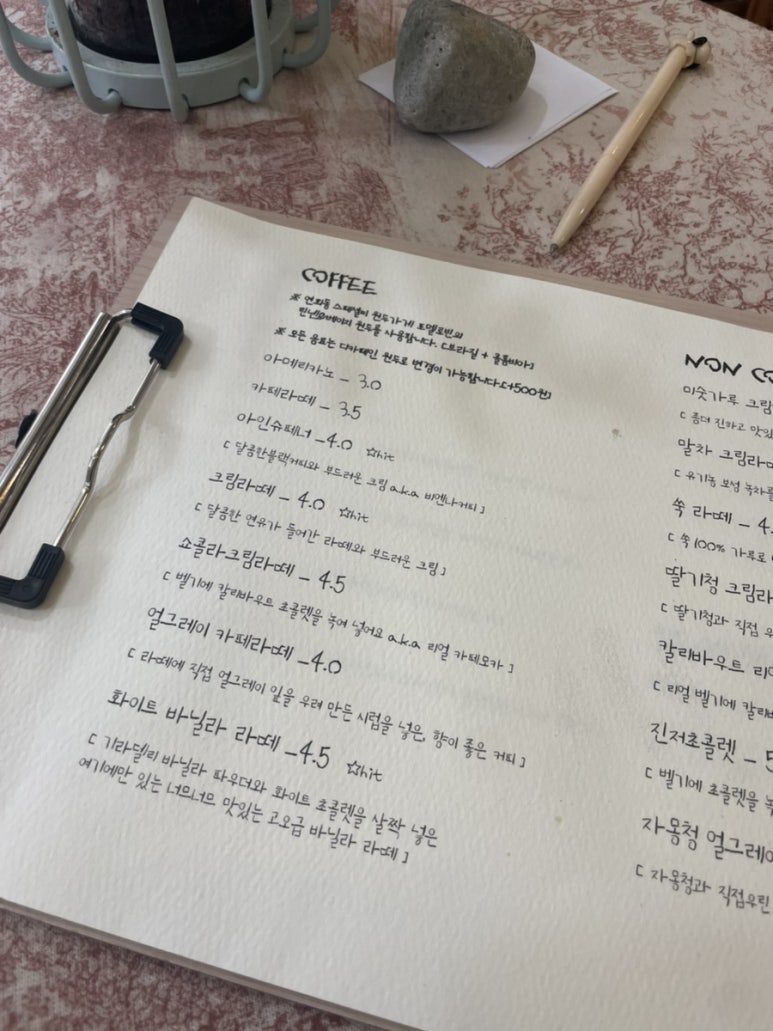 COFFEE
※ 연희동 스페셜티 원두가게 로앤로빈의
린넨@베이비 원두를 사용합니다. [브라질 + 콜롬비아]
※ 모든 음료는 디카페인 원두로 변경이 가능합니다.[+500원]
아메리카노 - 3.0
카페라떼 - 3.5
아인슈페너 - 4.0 ☆hit
[ 달콤한블랙커피와 부드러운 크림 a.k.a 비엔나커피 ]
크림라떼 - 4.0 ☆hit
[ 달콤한 연유가 들어간 라떼와 부드러운 크림 ]
쇼콜라크림라떼 - 4.5
[ 벨기에 칼리바우트 초콜렛을 녹여 넣어요 a.k.a 리얼 카페모카 ]
얼그레이 카페라떼 - 4.0
[ 라떼에 직접 얼그레이 잎을 우려 만든 시럽을 넣은, 향이 좋은 커피 ]
화이트 바닐라 라떼 - 4.5 ☆hit
[ 기라델리 바닐라 파우더와 화이트 초콜렛을 살짝 넣은
여기에만 있는 너므너므 맛있는 고오급 바닐라 라떼 ]
NON CO
미숫가루 크림
[ 좀더 진하고 맛있
말차 크림라떼
[ 유기농 보성 녹차를
쑥 라떼 - 4.
[ 쑥100% 가루로
딸기청 크림라
[ 딸기청과 직접 우
칼리바우트 리
[ 리얼 벨기에 칼리바
진저초콜렛 - 5
[ 벨기에 초콜렛을 녹
자몽청 얼그레이
[ 자몽청과 직접우린